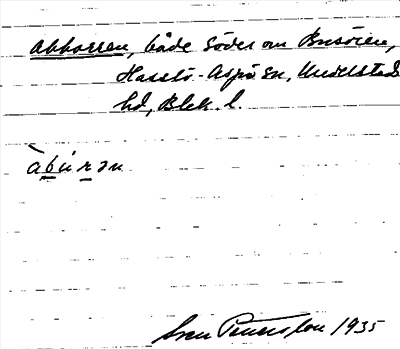 Abborren, både söder om Busören,
Hasslö-Aspö sn, Medelstads
hd, Blek. l.
àbúrən
Sven Peterson 1935